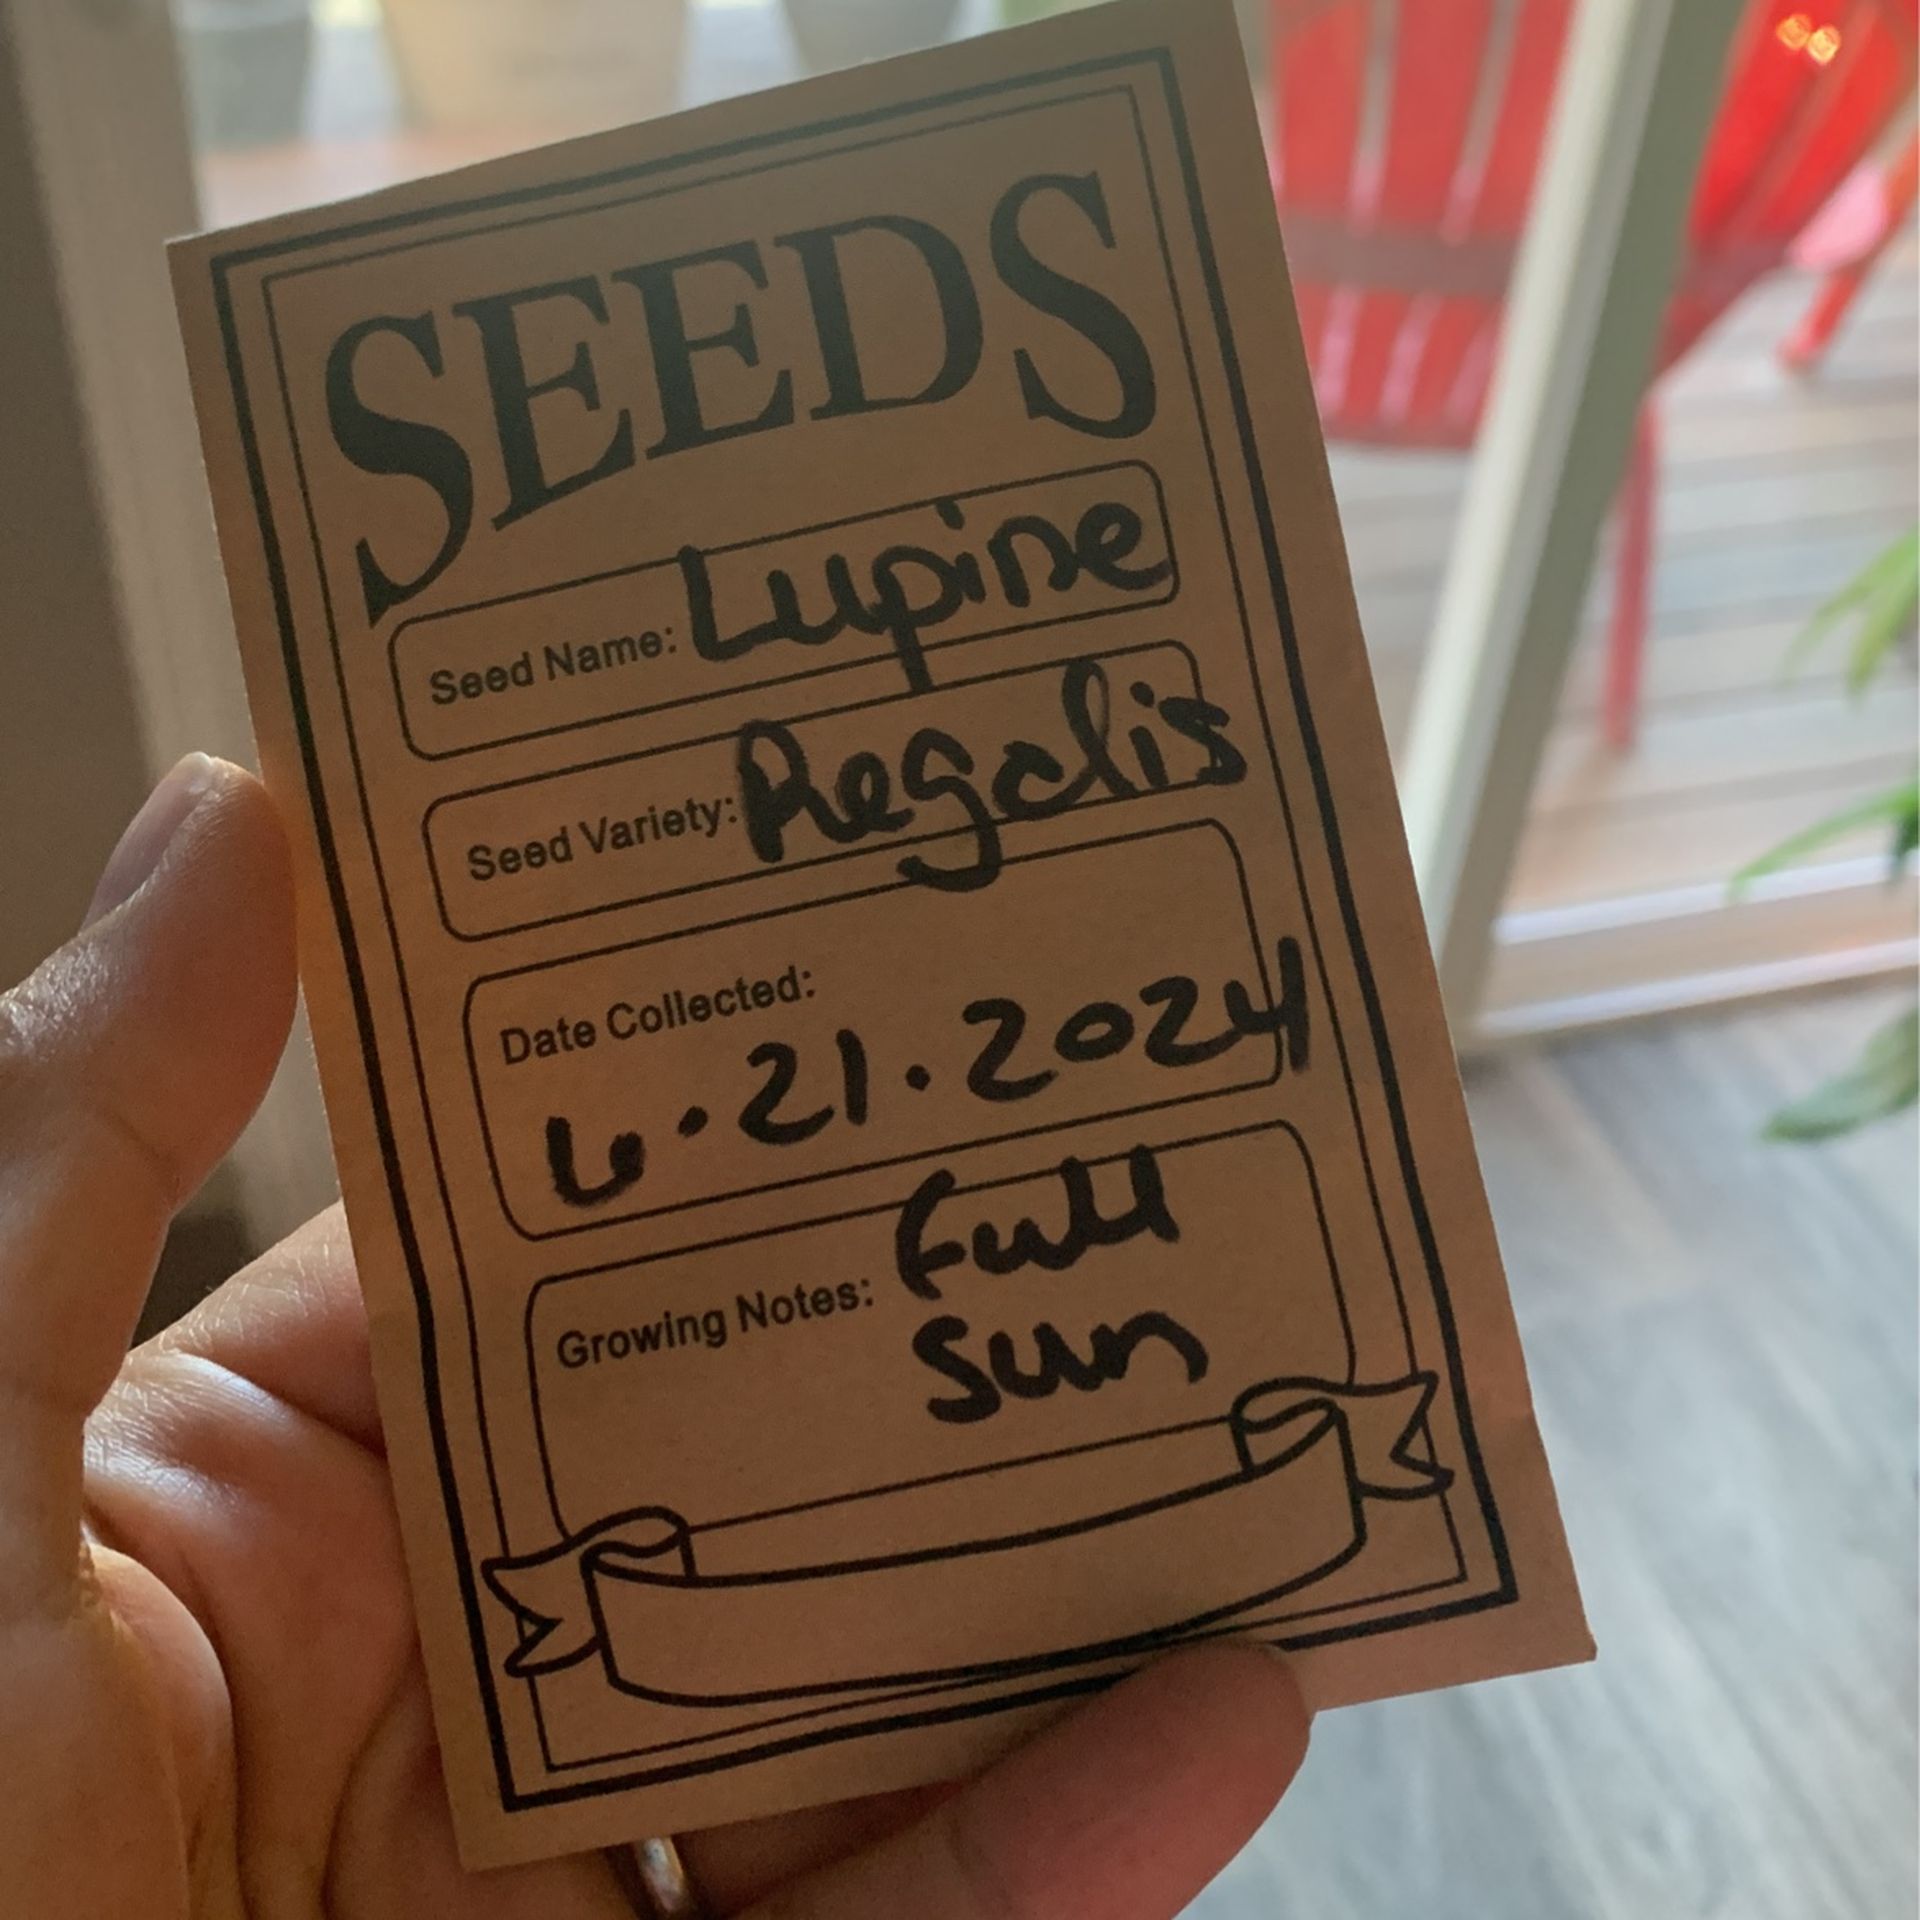 SEEDS
Seed Name: Lupine
Seed Variety: Regalis
Date Collected:
6.21.2024
Growing Notes: Full
Sun